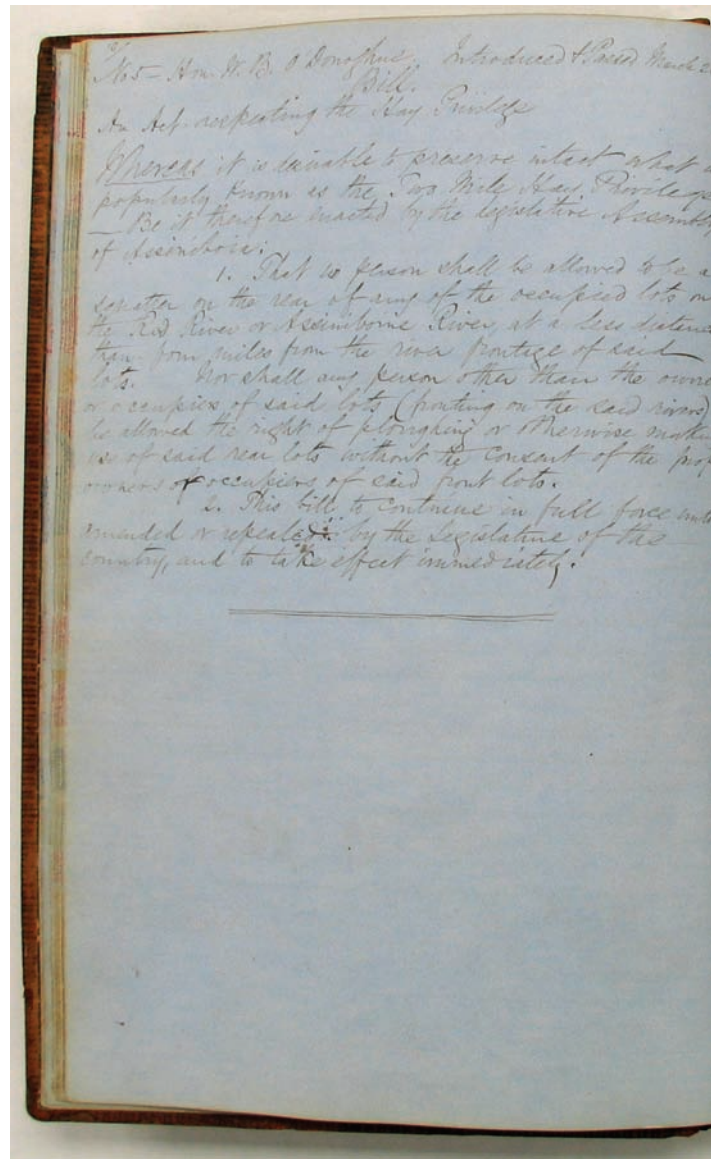 No 5 - Hon. W. B. O'Donoghue. Introduced & Passed March 2
Bill.
An Act respecting the Hay Privilege
Whereas it is desirable to preserve intact what
popularly known as the Two Mile Hay Privilege
— Be it therefore enacted by the Legislative Assembly
of Assiniboia:
1. That no person shall be allowed to be a
squatter on the rear of any of the occupied lots on
the Red River or Assiniboine River, at a less distance
than four miles from the river frontage of said
lots. Nor shall any person other than the owne
or occupiers of said lots (fronting on the said rivers)
be allowed the right of ploughing or otherwise makin
use of said rear lots without the consent of the prop
owners or occupiers of said front lots.
2. This bill to continue in full force unti
amended or repealed by the Legislature of the
country, and to take effect immediately.